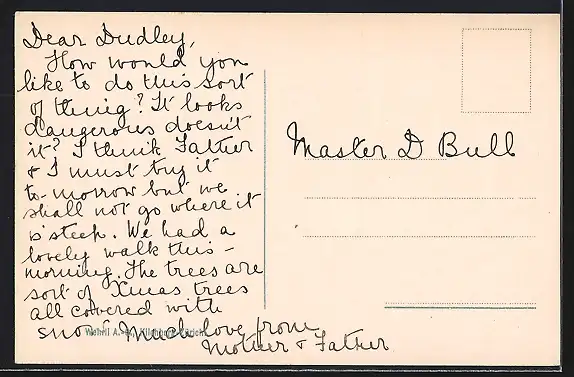 Dear Dudley,
How would you
like to do this sort
of thing? It looks
dangerous doesn't
it? I think Father
& I must try it
to-morrow but we
shall not go where it
is steep. We had a
lovely walk this-
morning. The trees are
sort of Xmas trees
all covered with
snow. Much love from
Mother & Father
Master D Bull
Wehrli A.-G., Kilchberg-Zürich